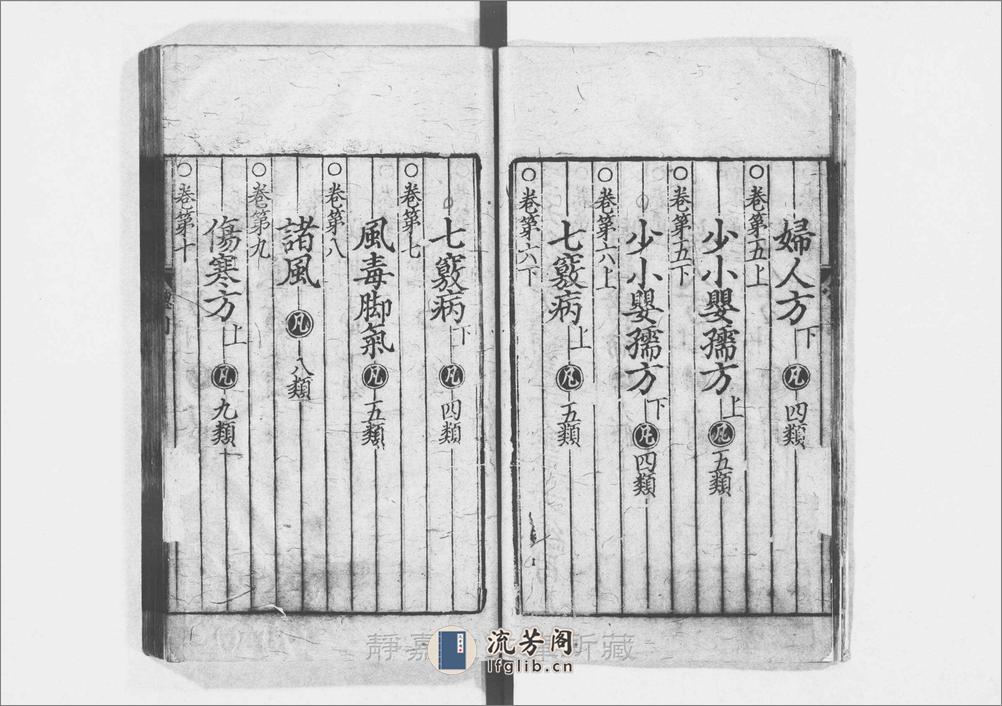 婦人方下 凡四類
○卷第五上
少小嬰孺方上 凡五類
○卷第五下
少小嬰孺方下 凡四類
○卷第六上
七竅病上 凡五類
○卷第六下
七竅病下 凡四類
○卷第七
風毒脚氣 凡五類
○卷第八
諸風 凡八類
○卷第九
傷寒方上 凡九類
○卷第十
靜嘉 所藏
流芳阁
lfglib.cn